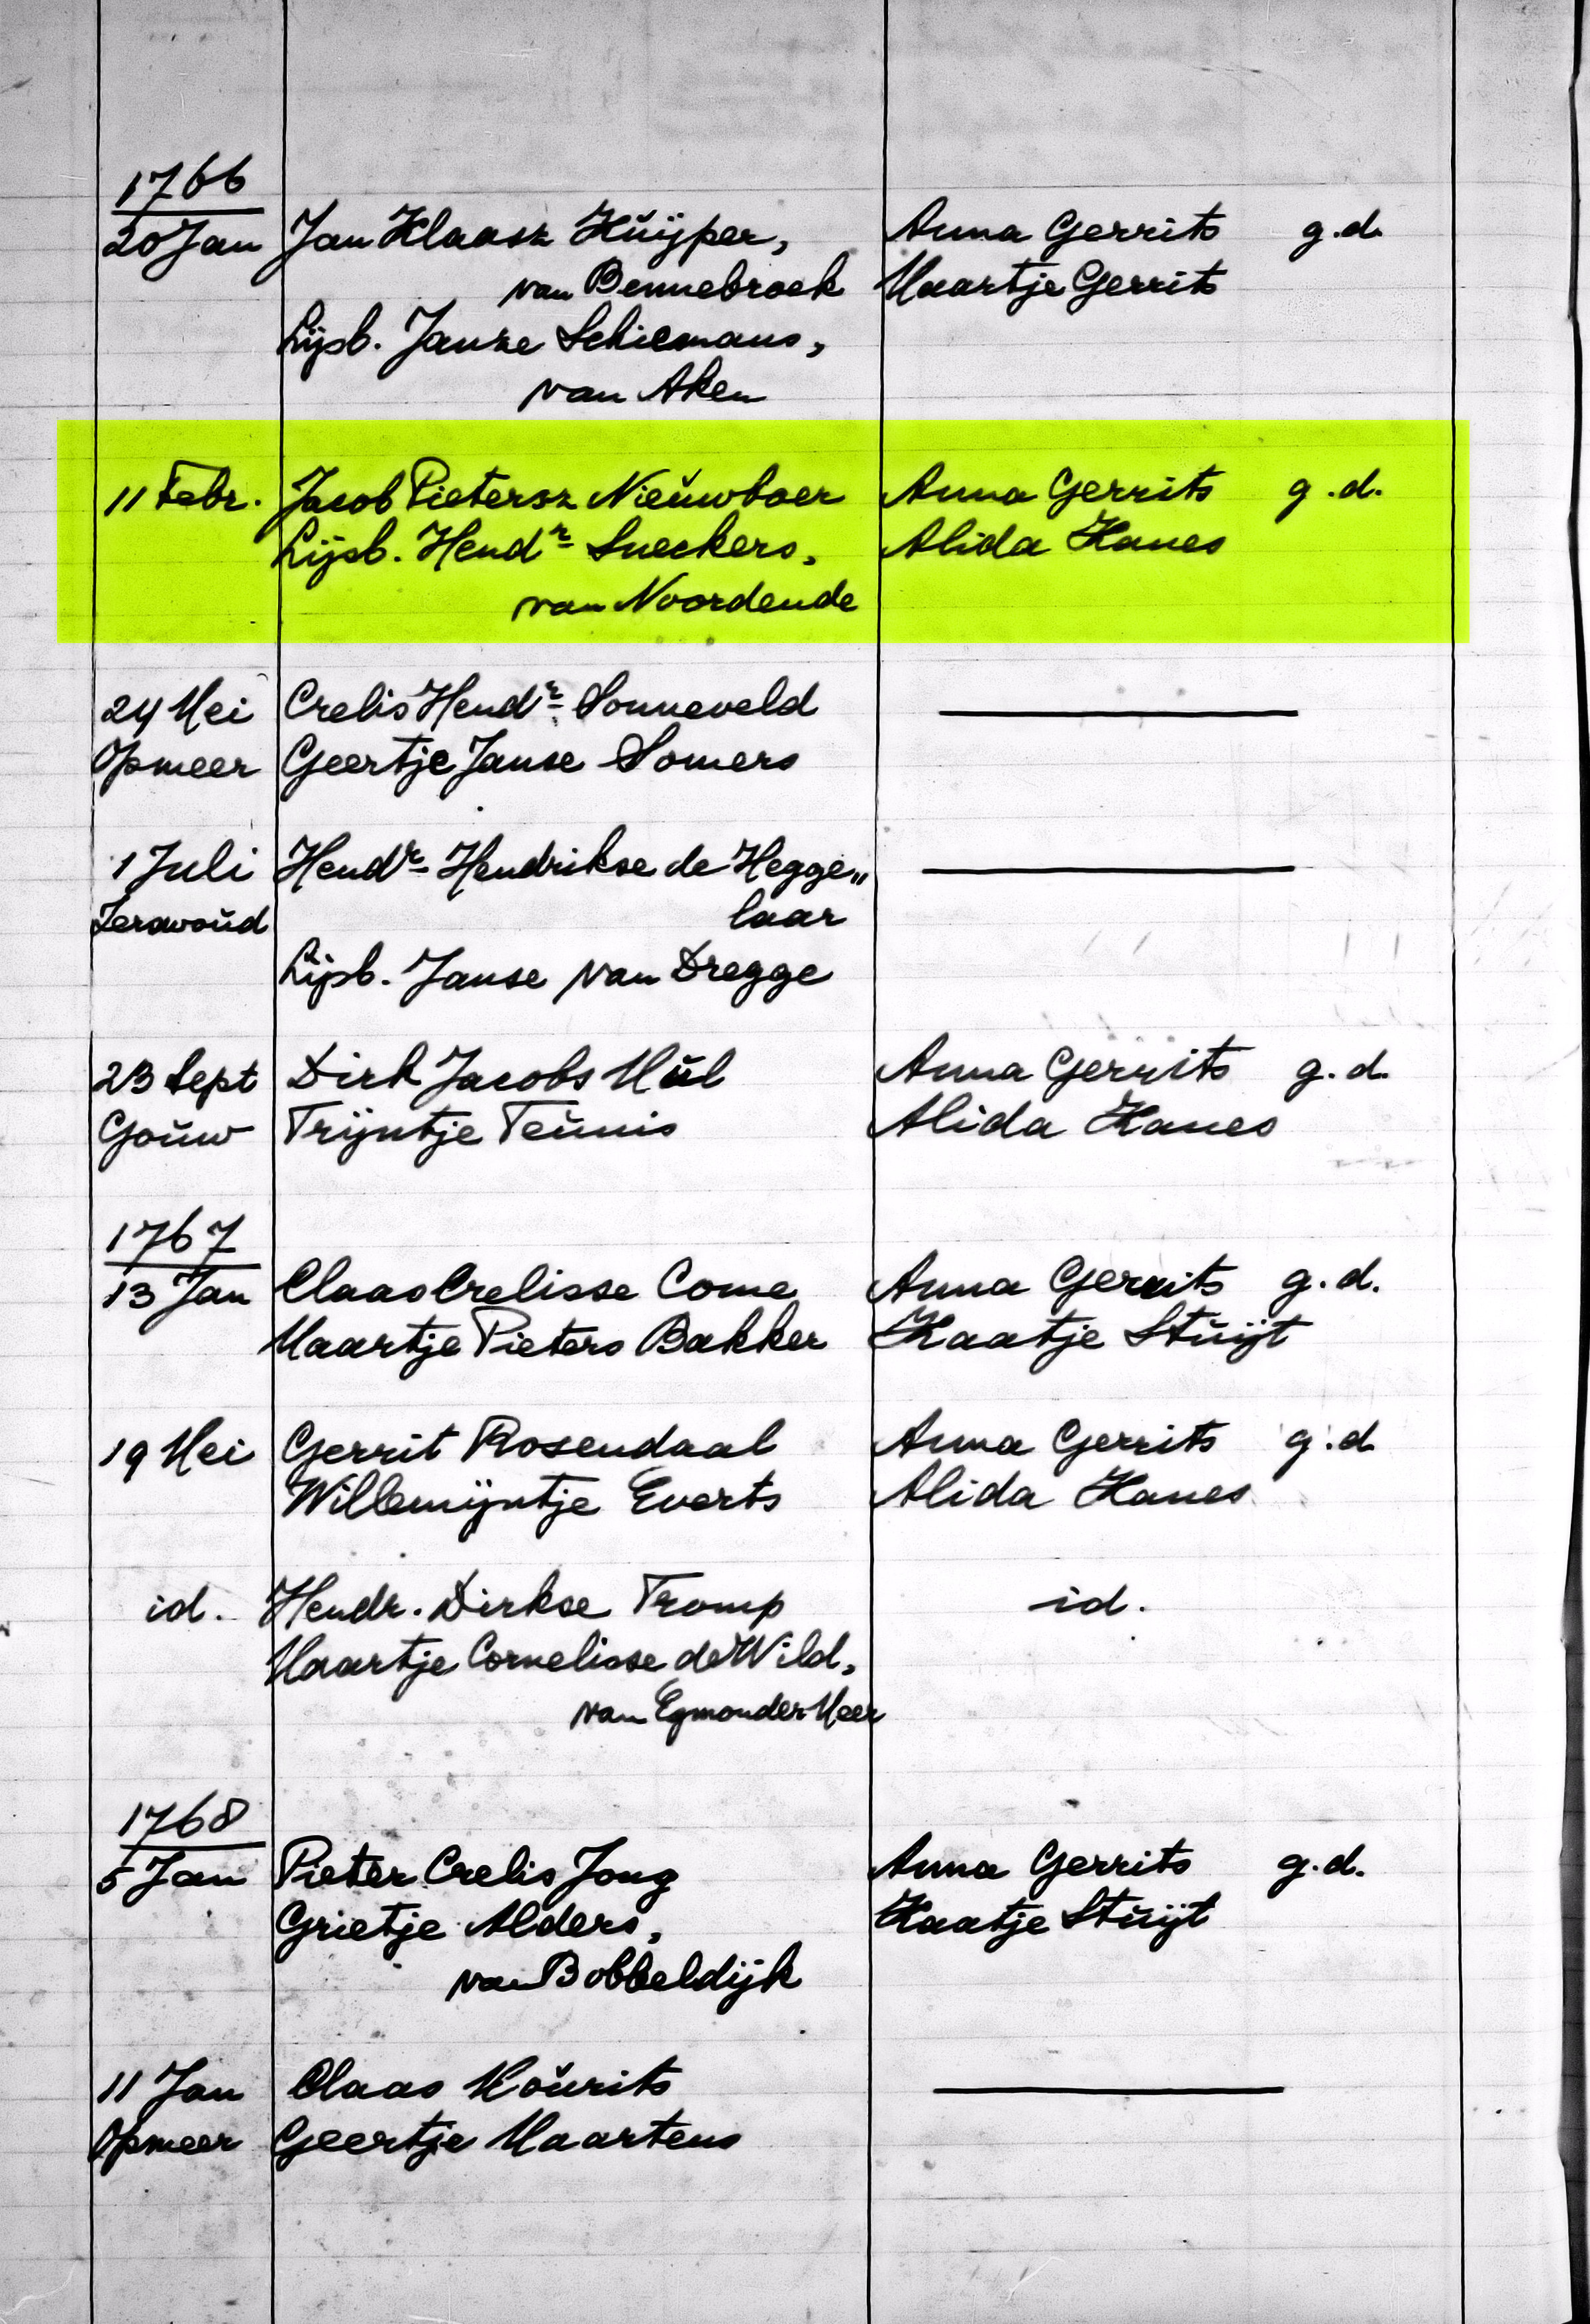 1766
20 Jan Jan Klaasz Kŭijper, Anna Gerrits g.d.
van Bennebroek Maartje Gerrits
Lijsb. Janse Schiemans,
van Aken
11 Febr. Jacob Pietersz Nieŭwboer Anna Gerrits g.d.
Lijsb. Hendr Sneekers, Alida Hanes
van Noordende
24 Mei Crelis Hendr Sonneveld
Opmeer Geertje Janse Somers
1 Juli Hendr Hendrikse de Hegge„
Zerswoŭd laar
Lijsb. Janse van Dregge
23 Sept Dirk Jacobs Mŭl Anna Gerrits g.d.
Goŭw Trijntje Teŭnis Alida Hanes
1767
13 Jan Claas Crelisse Come Anna Gerrits g.d.
Maartje Pieters Bakker Kaatje Stŭijt
19 Mei Gerrit Rosendaal Anna Gerrits g.d
Willemijntje Everts Alida Hanes
id. Hendr. Dirkse Tromp id.
Maartje Cornelisse de Wild,
van Egmonder-Meer
1768
5 Jan Pieter Crelis Jong Anna Gerrits g.d.
Grietje Alders, Kaatje Stŭijt
van Bobbeldijk
11 Jan Claas Moŭrits
Opmeer Geertje Maartens